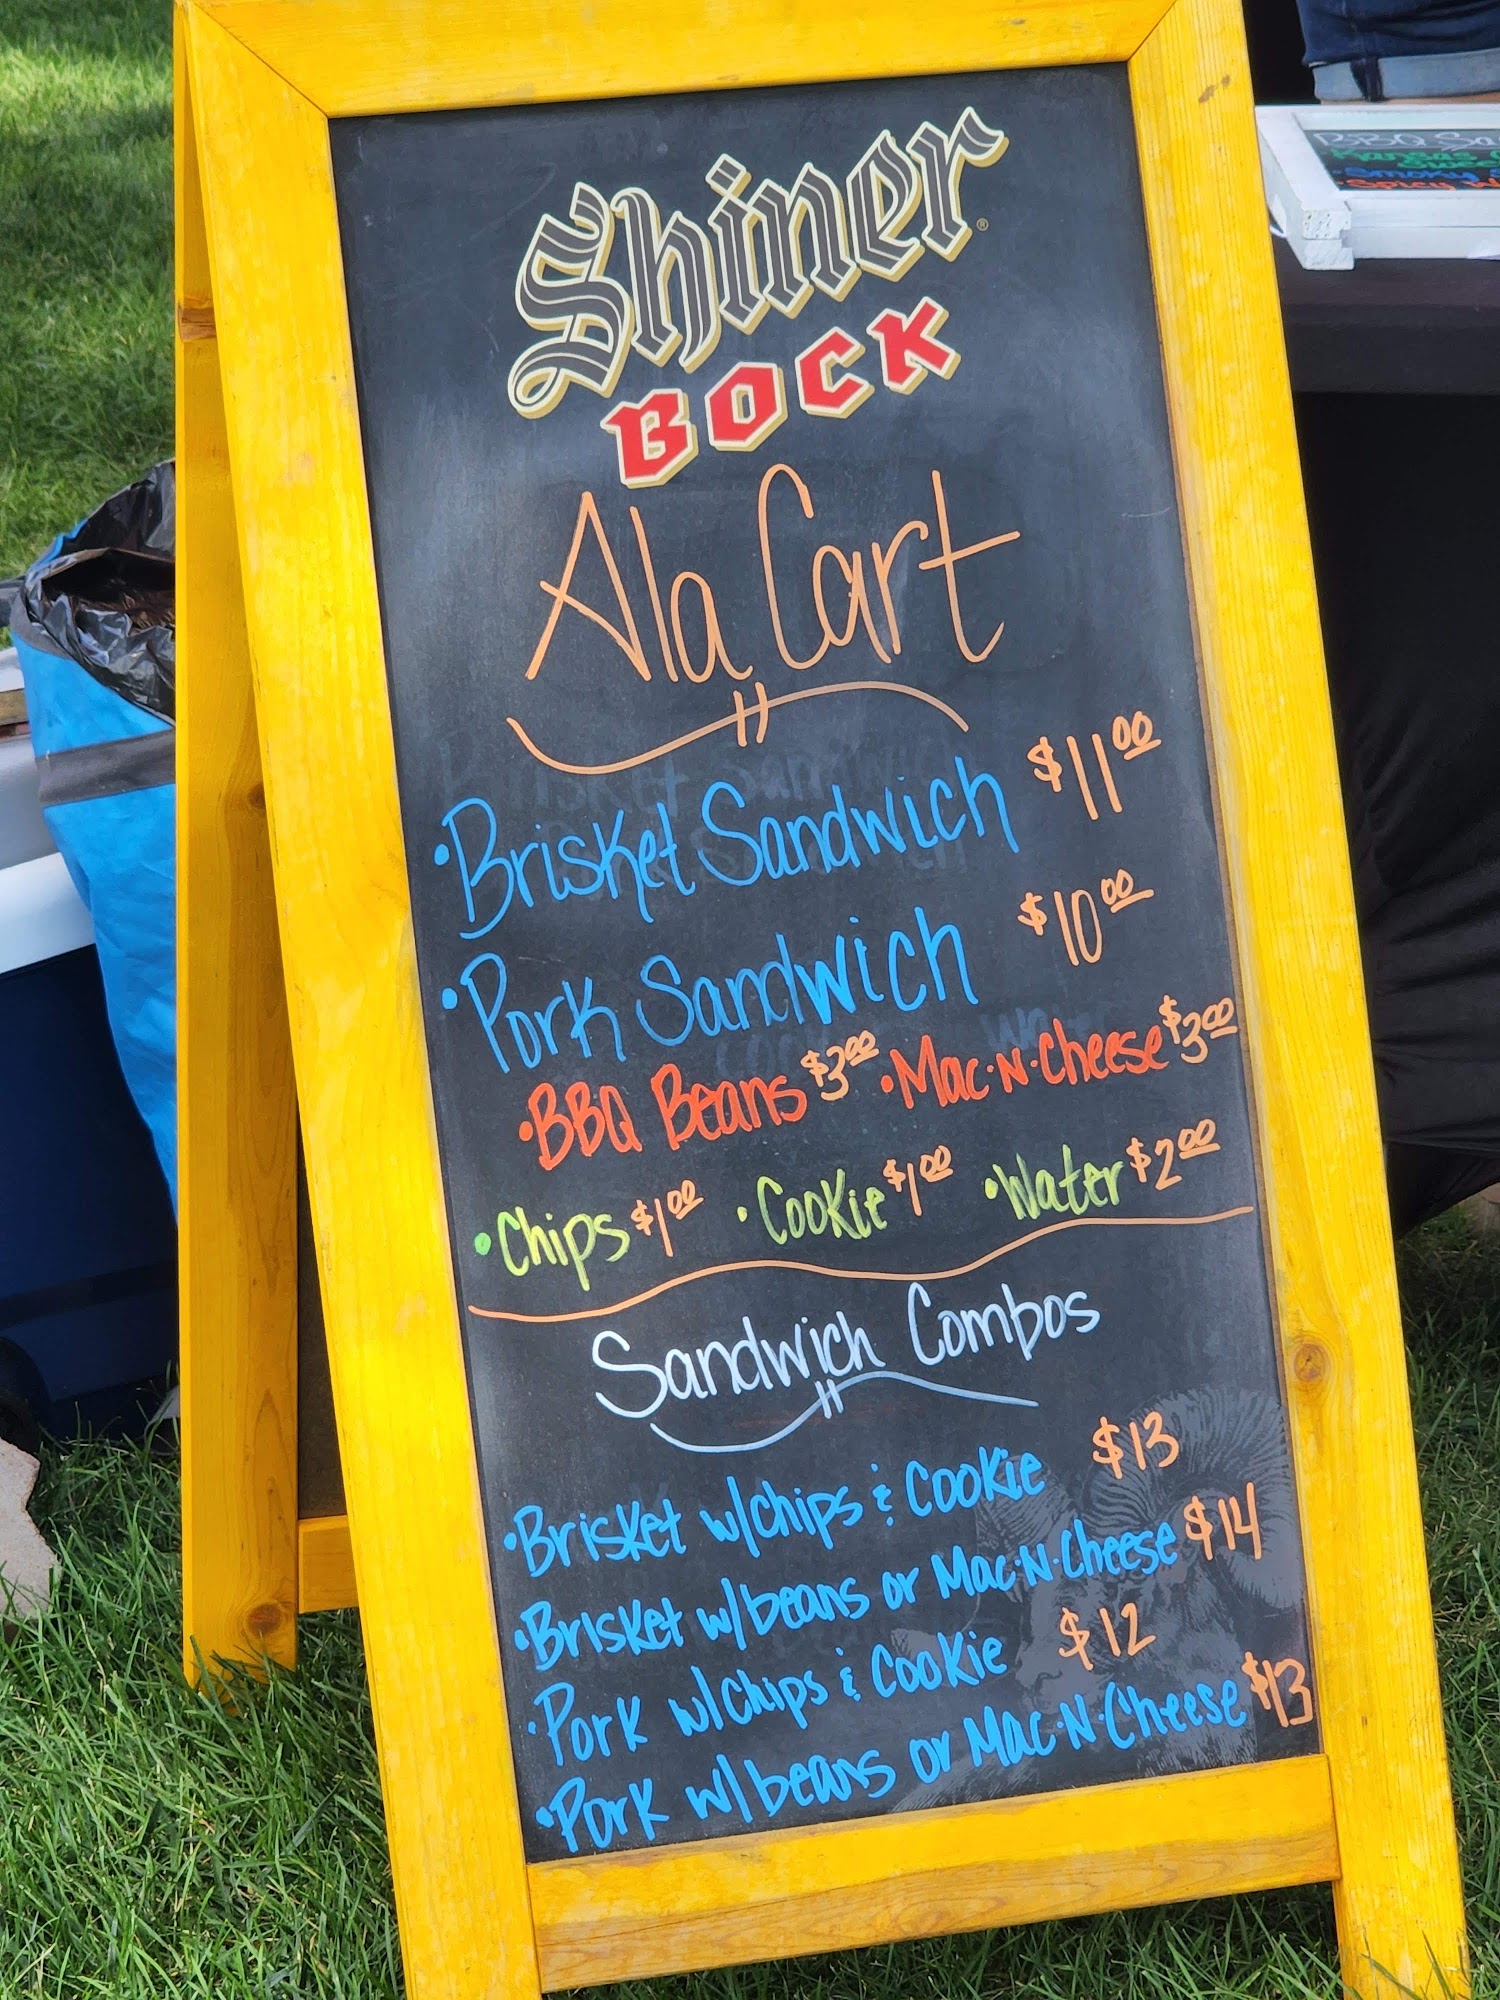 Shiner
BOCK
Ala Cart
• Brisket Sandwich $11.00
• Pork Sandwich $10.00
• BBQ Beans $3.00 • Mac·N·Cheese $3.00
• Chips $1.00 • Cookie $1.00 • Water $2.00
Sandwich Combos
• Brisket w/chips & Cookie $13
• Brisket w/beans or Mac·N·Cheese $14
• Pork w/chips & Cookie $12
• Pork w/beans or Mac·N·Cheese $13
BBQ Sa
Kansas
Smoky
Spicy